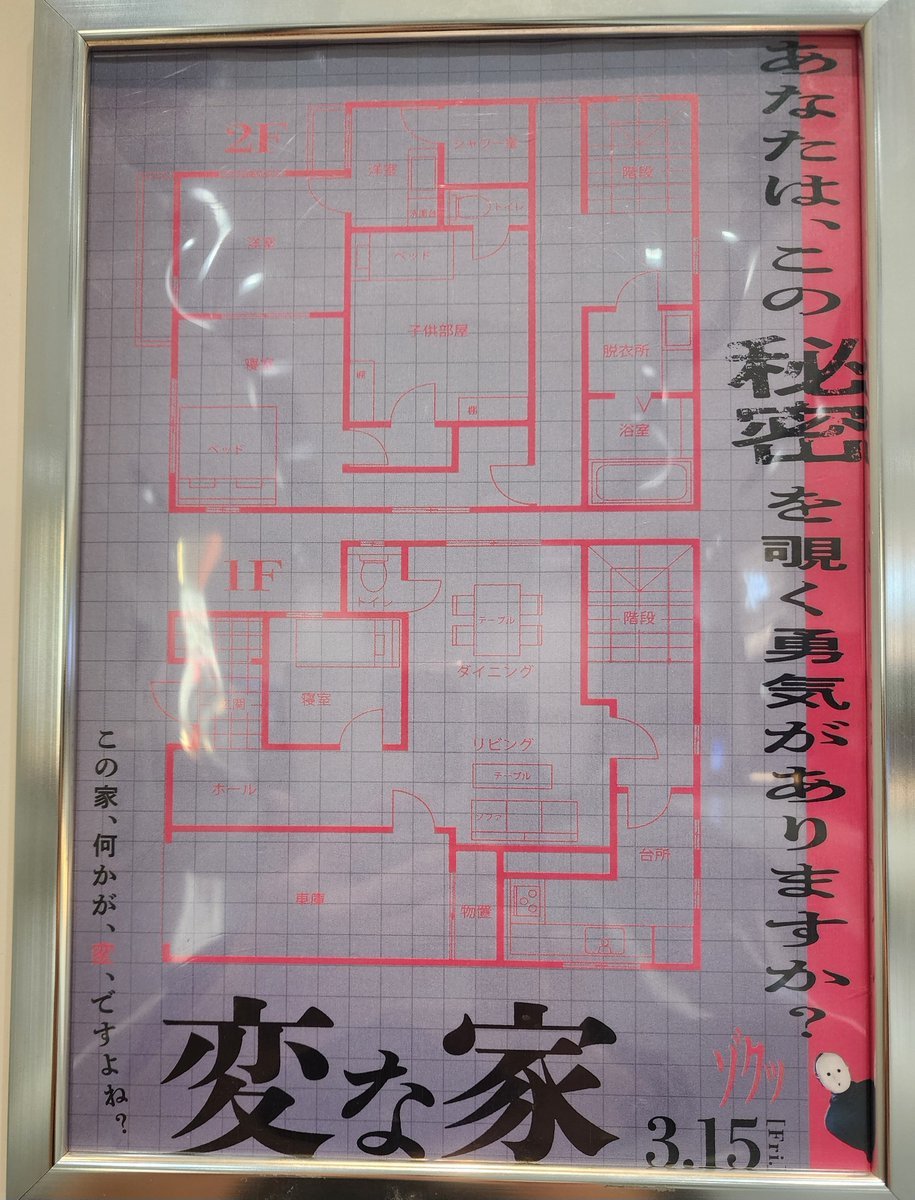 あなたは、この秘密を覗く勇気がありますか?
2F
洋室
シャワー室
洗面台
トイレ
階段
洋室
ベッド
子供部屋
棚
棚
寝室
ベッド
脱衣所
浴室
1F
トイレ
テーブル
ダイニング
階段
玄関
寝室
リビング
テーブル
ソファ
ホール
台所
車庫
物置
この家、何かが、変、ですよね?
変な家
ゾクッ
3.15[Fri.